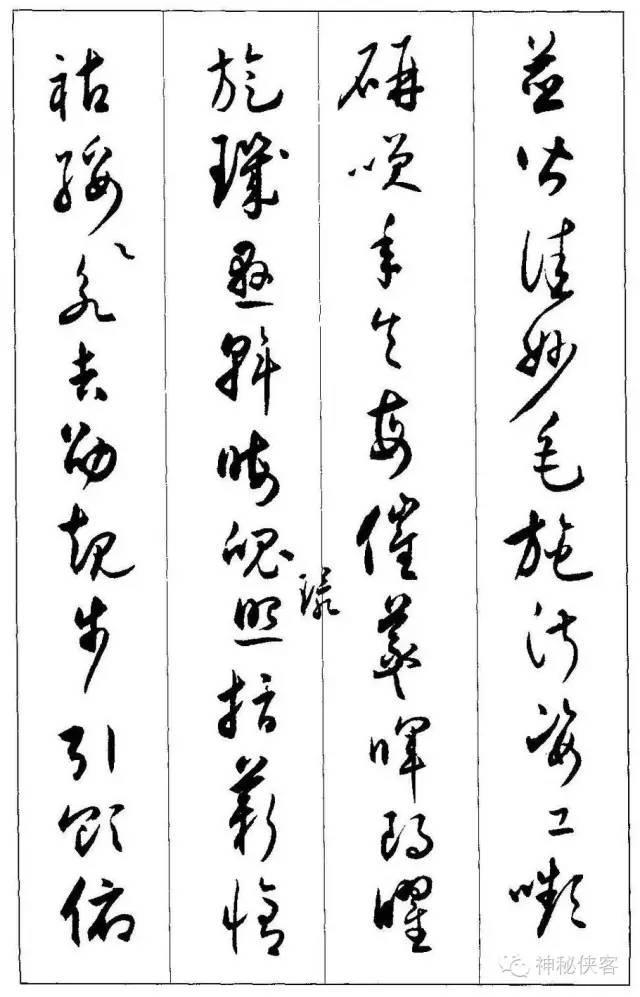 並皆佳妙毛施淑姿工嚬
研咲年矢每催羲暉朗曜
旋璣懸斡晦魄環照指薪脩
祜綏永吉劭矩步引領俯
神秘侠客